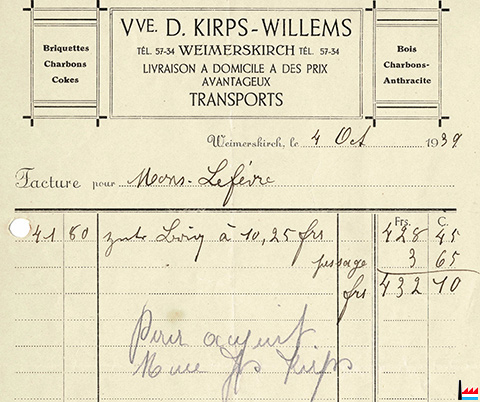 VVE. D. KIRPS-WILLEMS
TÉL. 57-34 WEIMERSKIRCH TÉL. 57-34
LIVRAISON A DOMICILE A DES PRIX
AVANTAGEUX
TRANSPORTS
Briquettes
Charbons
Cokes
Bois
Charbons-
Anthracite
Weimerskirch, le 4 Oct 1939
Facture pour Mons. Lefévre
Frs. C.
41 80 à 10,25 frs 428 45
pesage 3 65
frs 432 10
Pour acquit
Mme Kirps